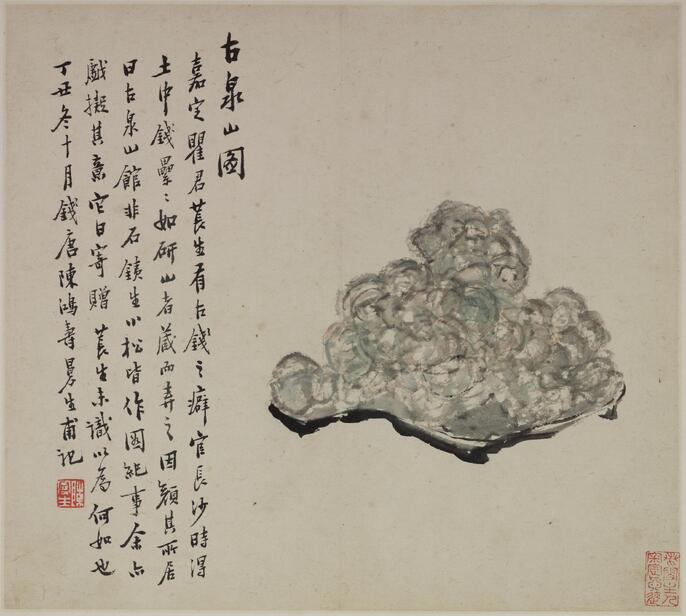 古泉山圖
嘉定瞿君萇生有古錢之癖官長沙時得
土中錢纍〻如研山者藏而弆之因顏其所居
曰古泉山館非石鐵生小松皆作圖紀事余亦
戲擬其意它日寄贈萇生未識以為何如也
丁丑冬十月錢唐陳鴻壽曼生甫記